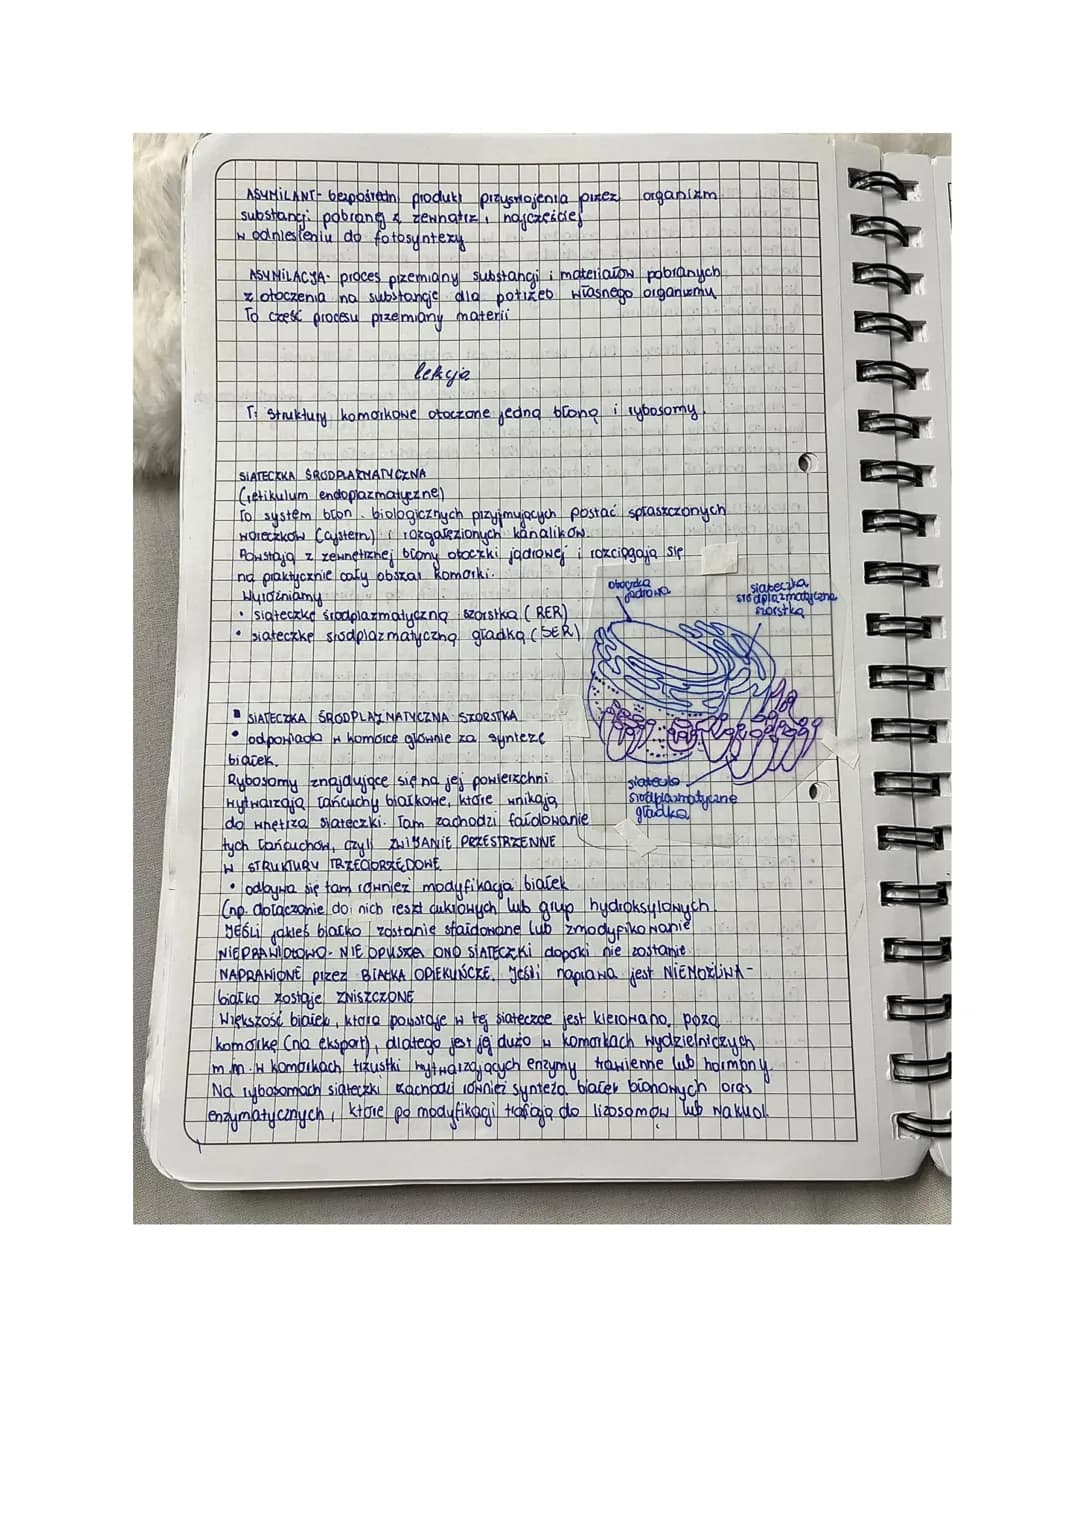 ASYMILANT- bezpośredni produkt przyswojenia przez organizm
substancji pobranej z zewnątrz, najczęściej
w odniesieniu do fotosyntezy
ASYMILACJA- proces przemiany substancji i materiałów pobranych
z otoczenia na substancje dla potrzeb własnego organizmu
To część procesu przemiany materii
lekcja
T: Struktury komórkowe otoczone jedną błoną i rybosomy.
SIATECZKA ŚRÓDPLAZMATYCZNA
(retikulum endoplazmatyczne)
To system błon biologicznych przyjmujących postać spłaszczonych
woreczków (cystern) i rozgałęzionych kanalików.
Powstają z zewnętrznej błony otoczki jądrowej i rozciągają się
na praktycznie cały obszar komórki.
Wyróżniamy
• siateczkę śródplazmatyczną szorstką (RER)
• siateczkę śródplazmatyczną gładką (SER)
otoczka
jądrowa
siateczka
śródplazmatyczna
szorstka
SIATECZKA ŚRÓDPLAZMATYCZNA SZORSTKA
• odpowiada w komórce głównie za syntezę
białek.
Rybosomy znajdujące się na jej powierzchni
wytwarzają łańcuchy białkowe, które wnikają
do wnętrza siateczki. Tam zachodzi fałdowanie
tych łańcuchów, czyli ZWIJANIE PRZESTRZENNE
W STRUKTURY TRZECIORZĘDOWE
siateczka
śródplazmatyczne
gładka
• odbywa się tam również modyfikacja białek
(np. dołączanie do nich reszt cukrowych lub grup hydroksylowych.
JEŚLI jakieś białko zostanie sfałdowane lub zmodyfikowanie
NIEPRAWIDŁOWO- NIE OPUSZCZA ONO SIATECZKI dopóki nie zostanie
NAPRAWIONE przez BIAŁKA OPIEKUŃCZE. Jeśli naprawa jest NIEMOŻLIWA-
białko zostaje ZNISZCZONE
Większość białek, która powstaje w tej siateczce jest kierowana poza
komórkę (na eksport), dlatego jest jej dużo w komórkach wydzielniczych
m.in. w komórkach trzustki wytwarzających enzymy trawienne lub hormony.
Na rybosomach siateczki zachodzi również synteza białek błonowych oraz
enzymatycznych, które po modyfikacji trafiają do lizosomów lub wakuol.